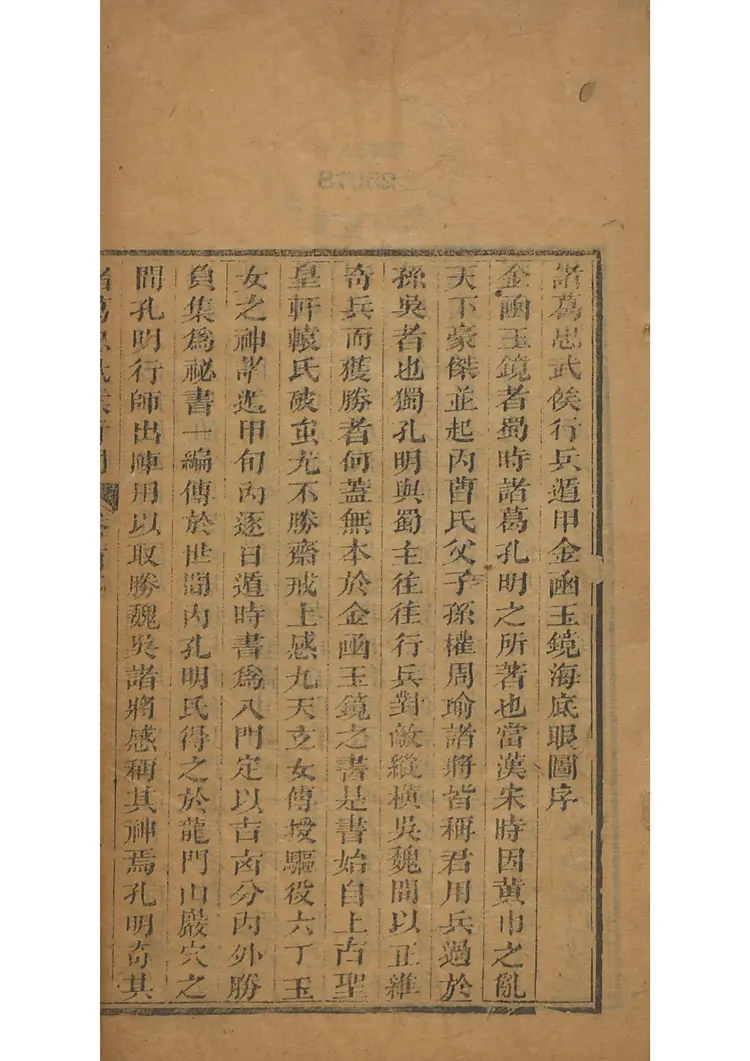 諸葛忠武侯行兵遁甲金凾玉鏡海底眼圖序
金凾玉鏡者蜀時諸葛孔明之所著也當漢末時因黃巾之亂
天下豪傑並起內曹氏父子孫權周瑜諸將皆稱君用兵過於
孫吳者也獨孔明與蜀主往往行兵對敵縱橫吳魏間以正雜
奇兵而獲勝者何蓋無本於金凾玉鏡之書是書始自上古聖
皇軒轅氏破蚩尤不勝齋戒上感九天玄女傳授驅役六丁玉
女之神諸遁甲旬內逐日遁時書爲八門定以吉凶分內外勝
負集爲祕書一編傳於世間內孔明氏得之於龍門山巖穴之
間孔明行師出陣用以取勝魏吳諸將感稱其神焉孔明奇其
諸葛武侯行